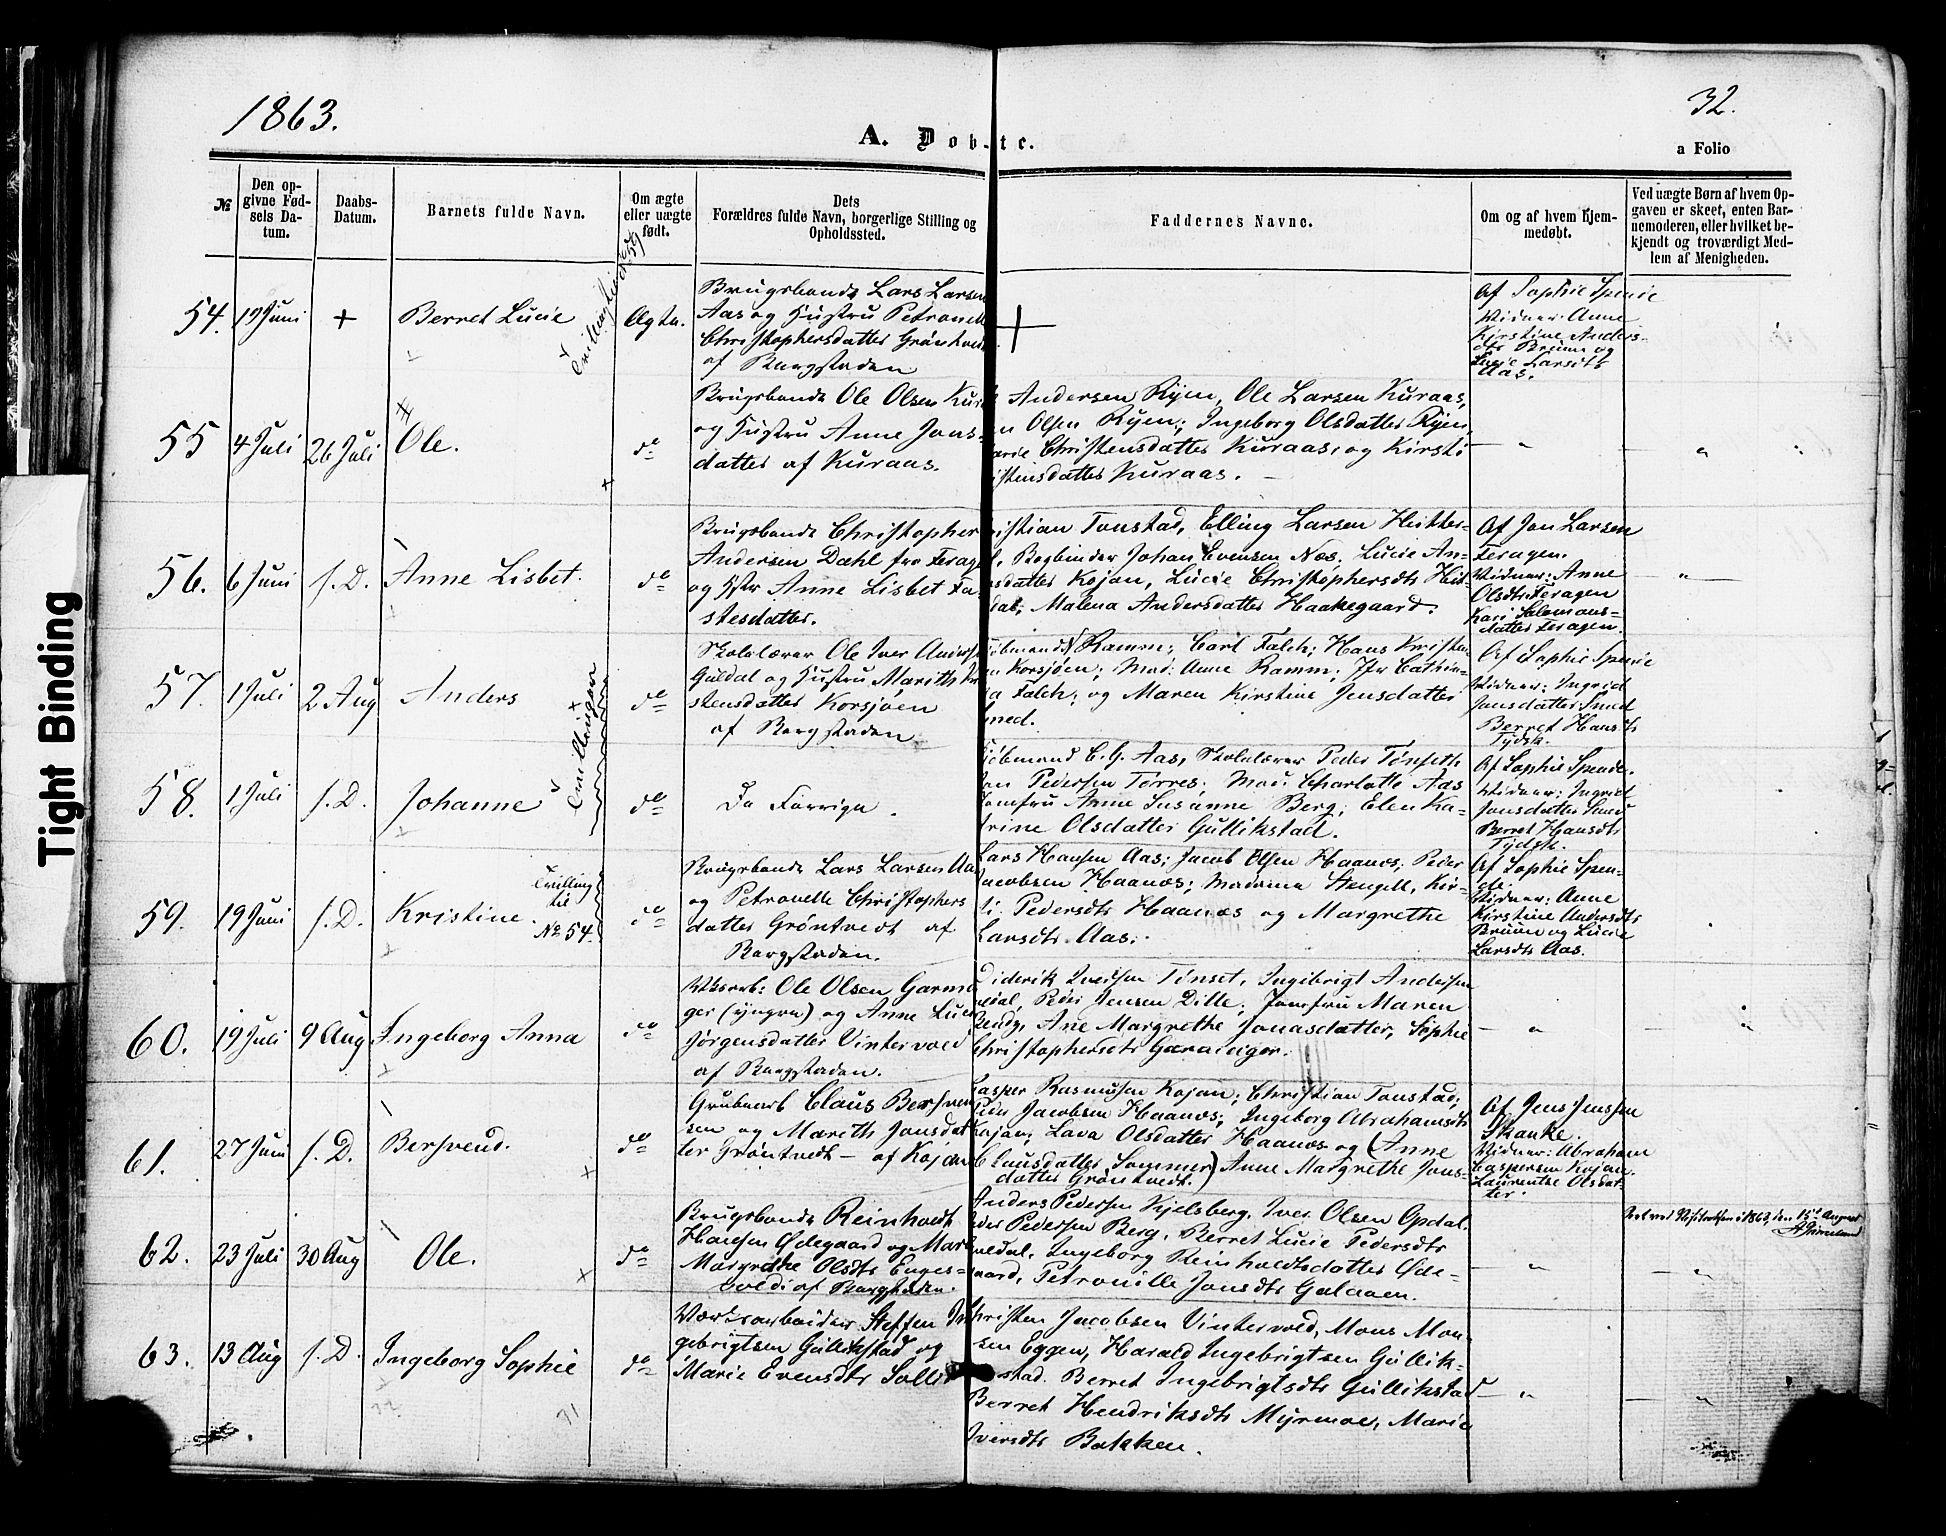 1863.
32.
A. Døbte.
a Folio
№
Den opgivne Fødsels Datum.
Daabs-Datum.
Barnets fulde Navn.
Om ægte eller uægte født.
Dets Forældres fulde Navn, borgerlige Stilling og Opholdssted.
Faddernes Navne.
Om og af hvem hjemmedøbt.
Ved uægte Børn af hvem Opgaven er skeet, enten Barnemoderen, eller hvilket bekjendt og troværdigt Medlem af Menigheden.
54. 19 Juni + Berret Lucie
Ægte.
Brugsbonde Lars Larsen
Aas og Hustru Petronelle
Christophersdatter Grøntvedt
af Bergstaden
+
Af Sophie Spende
Vidner: Anne
Kirstine Anders-
dtr Bruun og
Lucie Larsdtr
Aas.
55 4 Juli 26 Juli Ole.
do
Brugsbonde Ole Olsen Kur
og Hustru Anne Jons-
datter af Kuraas.
Andersen Ryen, Ole Larsen Kuraas,
n Olsen Ryen; Ingeborg Olsdatter Ryen,
Christensdatter Kuraas; og Kirsti
istensdatter Kuraas.
— "
"
56. 6 Juni f. D. Anne Lisbet.
do
Brugsbonde Christopher
Andersen Dahl fra Ferag
og Hstr Anne Lisbet Fa-
stesdatter.
ristian Tonstad, Elling Larsen Hitter-
l, Bogbinder Johan Evensen Næs, Lucie An-
sdatter Kojan, Lucie Christophersdtr Hit-
dal, Malena Andersdatter Haakegaard.
Af Jon Larsen
Feragen.
Vidner: Anne
Olsdtr Feragen
Kari Salomons-
datter Feragen.
"
57. 1 Juli 2 Aug Anders
Tvillinger
do
Skolelærer Ole Iver Anders
Guldal og Hustru Marith Kr
stensdatter Korsjøen
af Bergstaden
jøbmand N Ramm; Carl Falch; Hans Kristen
n Korsjøen; Mad: Anne Ramm; Jfr Cathrin
a Falch; og Maren Kirstine Jensdatter
med.
Af Sophie Spende
Vidner: Ingrid
Jonsdatter Smed
Berret Hansdtr
Tydsk.
58. 1 Juli f. D. Johanne
do
De Forrige.
jøbmand C. G. Aas, Skolelærer Peder Tønseth
Pedersen Torres; Mad: Charlotte Aas
Jomfru Anne Susanne Berg; Elen Ka-
trine Olsdatter Gullikstad.
Af Sophie Spende.
Vidner: Ingrid
Jonsdatter Smed
Berret Hansdtr
Tydsk.
59. 19 Juni f. D. Kristine.
Tvilling
til
No 54.
do
Brugsbonde Lars Larsen Aas
og Petronelle Christophers
datter Grøntvedt af
Bergstaden.
Lars Hansen Aas; Jacob Olsen Haanæs; Peder
Jacobsen Haanæs; Madame Stengell, Kir-
ti Pedersdtr Haanæs og Margrethe
Larsdtr Aas.
Af Sophie Spen-
de.
Vidner: Anne
Kirstine Andersdtr
Bruun og Lucie
Larsdtr Aas.
60. 19 Juli 9 Aug Ingeborg Anna
do
Ole Olsen Garma
ger (yngre) og Anne Lucie
Jørgensdatter Vintervold
af Bergstaden.
Diderik Iversen Tønset, Ingebrigt Andersen
Peder Jensen Dille; Jomfru Maren
Bendz, Ane Margrethe Jonasdatter, Sophie
Christophersdtr
— "
"
61. 27 Juni f. D. Bersvend.
do
Grubearb Claus Bersven
sen og Marith Jonsdat
ter Grøntvedt — af Kojan
Casper Rasmusen Kojan; Christian Tonstad;
Peder Jacobsen Haanæs; Ingeborg Abrahamsdtr
Kojan; Lava Olsdatter Haanæs og (Anne
Clausdatter Sommer) Anne Margrethe Jons-
datter Grøntvedt.
Af Jens Jenssen
Skanke.
Vidner: Abraham
Caspersen Kojan.
Laurentze Olsdat-
ter.
62. 23 Juli 30 Aug Ole.
do
Brugsbonde Reinholdt
Hansen Ødegaard og Mar
Margrethe Olsdtr Enges-
vold af Bergstaden.
Anders Pedersen Kjelsberg, Iver Olsen Opdal.
Peder Pedersen Berg, Berret Lucie Pedersdtr
Ingeborg Reinholdtsdatter Øde-
aard, Petronille Jonsdtr Galaaen.
— "
Seet ved Visitatsen i 1863, den 15de August
"
63. 13 Aug f. D. Ingeborg Sophie
do
Værksarbeider Steffen In
gebrigtsen Gullikstad og
Marie Evensdtr Solli
hristen Jacobsen Vintervold, Mons Mon-
sen Eggen, Harald Ingebrigtsen Gullik-
stad. Berret Ingebrigtsdtr Gullikstad
Berret Hendriksdtr Myrmoe, Marie
Iversdtr Bakken.
"
"
Tight Binding